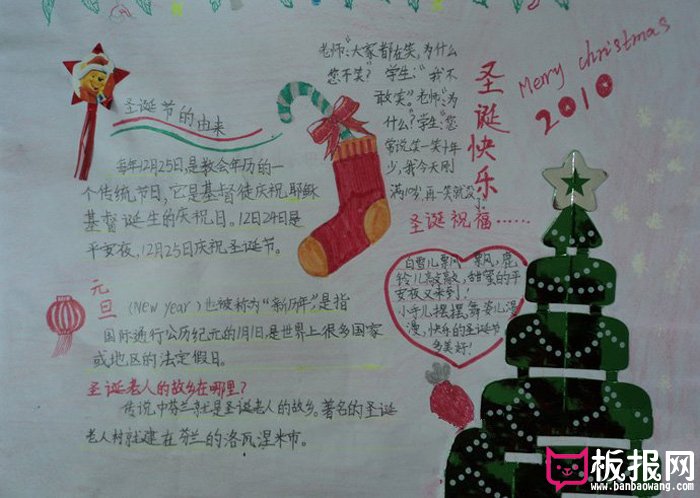 圣诞节的由来
每年12月25日,是教会年历的一
个传统节日,它是基督徒庆祝耶稣
基督诞生的庆祝日。12日24日是
平安夜,12月25日庆祝圣诞节。
元
旦
(New year)也被称为“新历年”,是指
国际通行公历纪元的1月1日,是世界上很多国家
或地区的法定假日。
圣诞老人的故乡在哪里?
传说,中芬兰就是圣诞老人的故乡。著名的圣诞
老人村就建在芬兰的洛瓦涅米市。
老师:“大家都在笑,为什么
您不笑?学生:“我不
敢笑。”老师:“为
什么?”学生:“您
常说笑一笑十年
少,我今天刚
满10岁,再一笑就没了
圣诞快乐
Merry christmas
2010
圣诞祝福……
白雪儿飘飘,鹿
铃儿敲敲,甜蜜的平
安夜又来到!
小手儿摆摆,舞姿儿漫
漫,快乐的圣诞节
多美好!
板报网
www.banbaowang.com